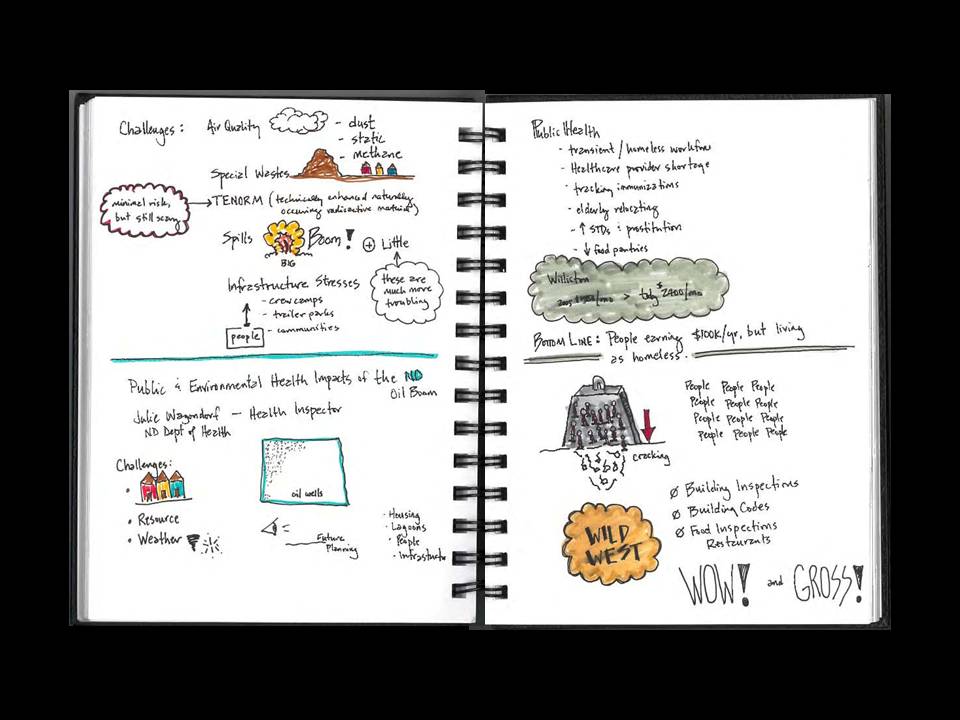 Challenges:
Air Quality
- dust
- static
- methane
Special Wastes
minimal risk,
but still scary
TENORM (technically enhanced naturally
occuring radioactive material)
Spills
Boom!
BIG
+ Little
these are
much more
troubling
Infrastructure Stresses
- crew camps
- trailer parks
- communities
people
Public & Environmental Health Impacts of the ND
Oil Boom
Julie Wagendorf — Health Inspector
ND Dept of Health
Challenges:
• Resource
• Weather
oil wells
Future
Planning
- Housing
- Lagoons
- People
- Infrastructu
Public Health
- transient / homeless workflow
- Healthcare provider shortage
- tracking immunizations
- elderly relocating
- ↑ STDs & prostitution
- ↓ food pantries
Williston
/mo > today $2400/mo
BOTTOM LINE: People earning $100K/yr, but living
as homeless.
People People People
People People People
People People People
People People People
cracking
Ø Building Inspections
Ø Building Codes
Ø Food Inspections
Restaurants
WILD
WEST
WOW! and GROSS!